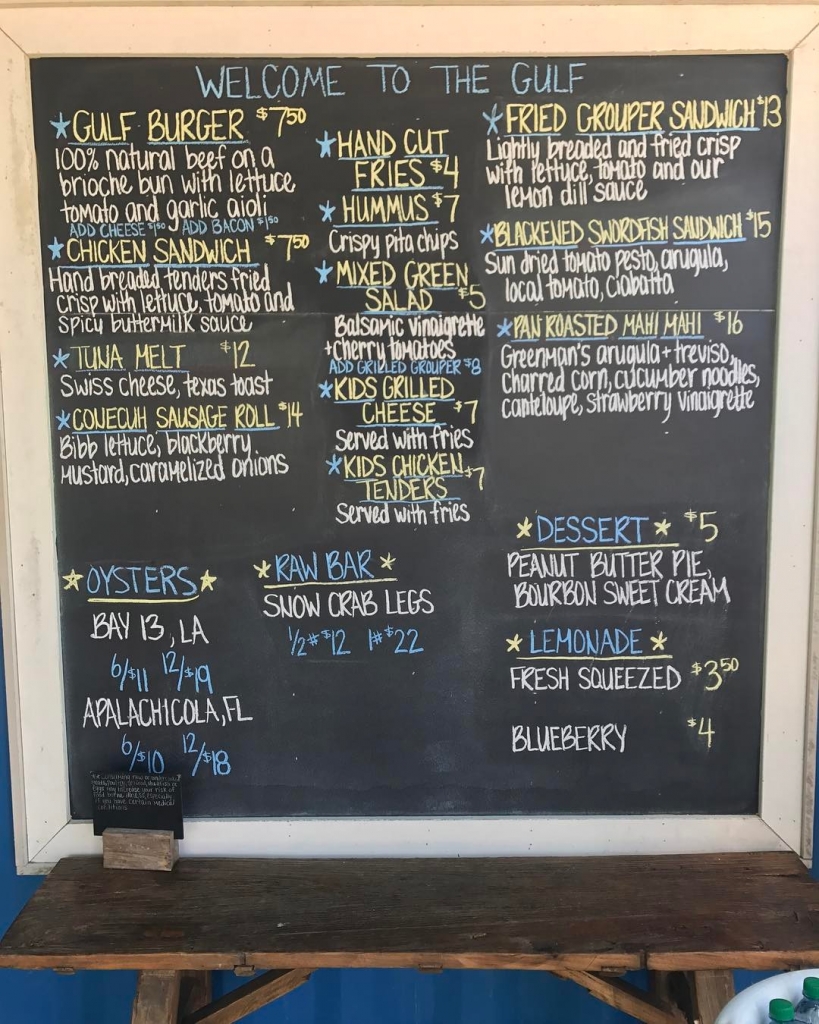 WELCOME TO THE GULF
*GULF BURGER $7.50
100% natural beef on a
brioche bun with lettuce
tomato and garlic aioli
ADD CHEESE $1.50 ADD BACON $1.50
*CHICKEN SANDWICH $7.50
Hand breaded tenders fried
crisp with lettuce, tomato and
spicy buttermilk sauce
*TUNA MELT $12
Swiss cheese, texas toast
*CONECUH SAUSAGE ROLL $14
Bibb lettuce, blackberry
mustard, caramelized onions
*HAND CUT
FRIES $4
*HUMMUS $7
Crispy pita chips
*MIXED GREEN
SALAD $5
Balsamic vinaigrette
+cherry tomatoes
ADD GRILLED GROUPER $8
*KIDS GRILLED
CHEESE $7
Served with fries
*KIDS CHICKEN
TENDERS $7
Served with fries
*FRIED GROUPER SANDWICH $13
Lightly breaded and fried crisp
with lettuce, tomato and our
lemon dill sauce
*BLACKENED SWORDFISH SANDWICH $15
Sun dried tomato pesto, arugula,
local tomato, ciabatta
*PAN ROASTED MAHI MAHI $16
Greenman's arugula + treviso,
charred corn, cucumber noodles,
canteloupe, strawberry vinaigrette
*OYSTERS*
BAY 13, LA
6/$11 12/$19
APALACHICOLA, FL
6/$10 12/$18
*RAW BAR*
SNOW CRAB LEGS
1/2# $12 1# $22
*DESSERT* $5
PEANUT BUTTER PIE,
BOURBON SWEET CREAM
*LEMONADE*
FRESH SQUEEZED $3.50
BLUEBERRY $4
consuming raw or
your risk of
especially
if you have certain medical
conditions